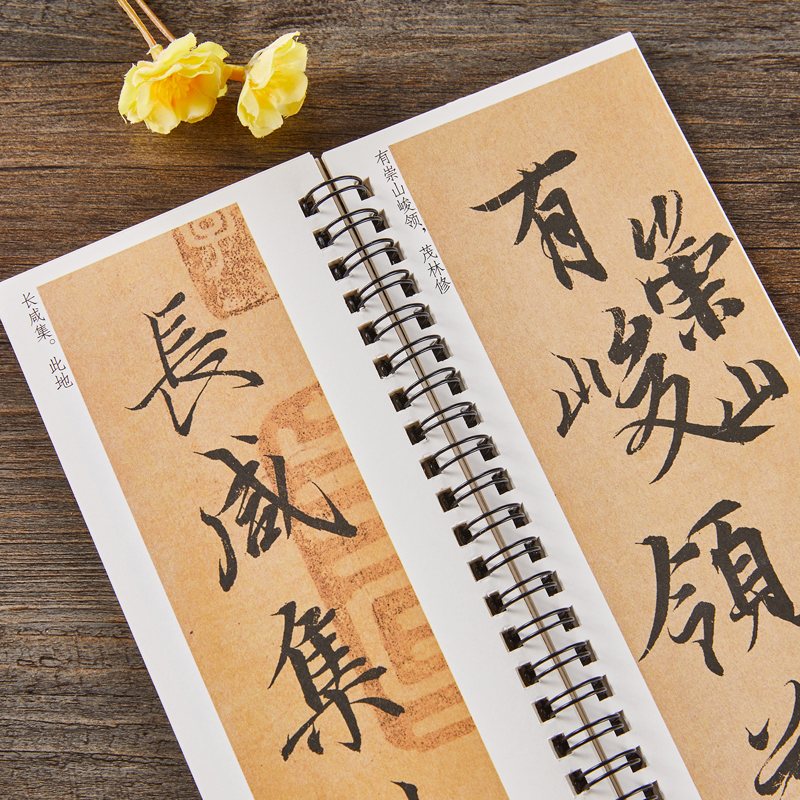 长咸集。此地
長咸集
有崇山峻领，茂林修
有崇山峻領